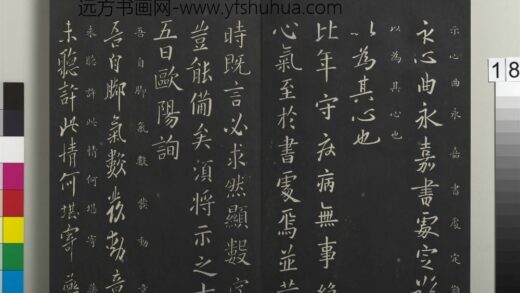 远方书画网-www.yfshuhua.com
18
示心曲永嘉書處定
示心曲永嘉書處定
以為其心也
以為其心也
比年守疾病無事
心氣至於書處焉並
時既言必求然顯數字
豈能備矣須將示之
五日歐陽詢
吾自脚氣數發動
吾自脚氣數發動竟
未聽許此情何堪寄
未聽許此情何堪寄藥